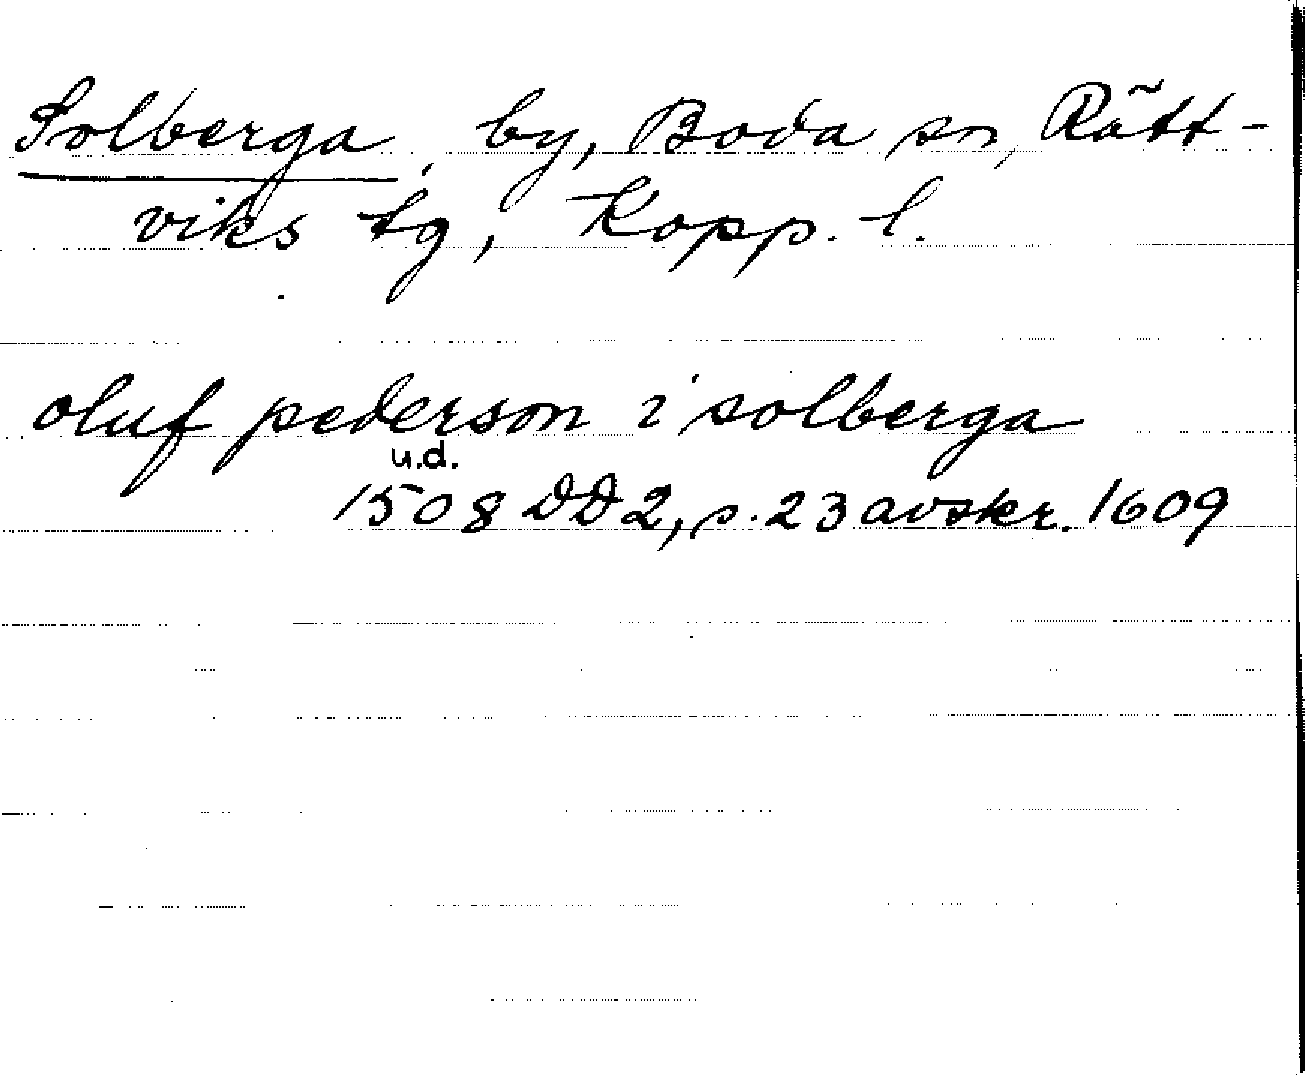 Solberga, by, Boda sn, Rätt-
viks tg, Kopp. l.
oluf pederson i solberga
u.d.
1508 DD2, s. 23 avskr. 1609